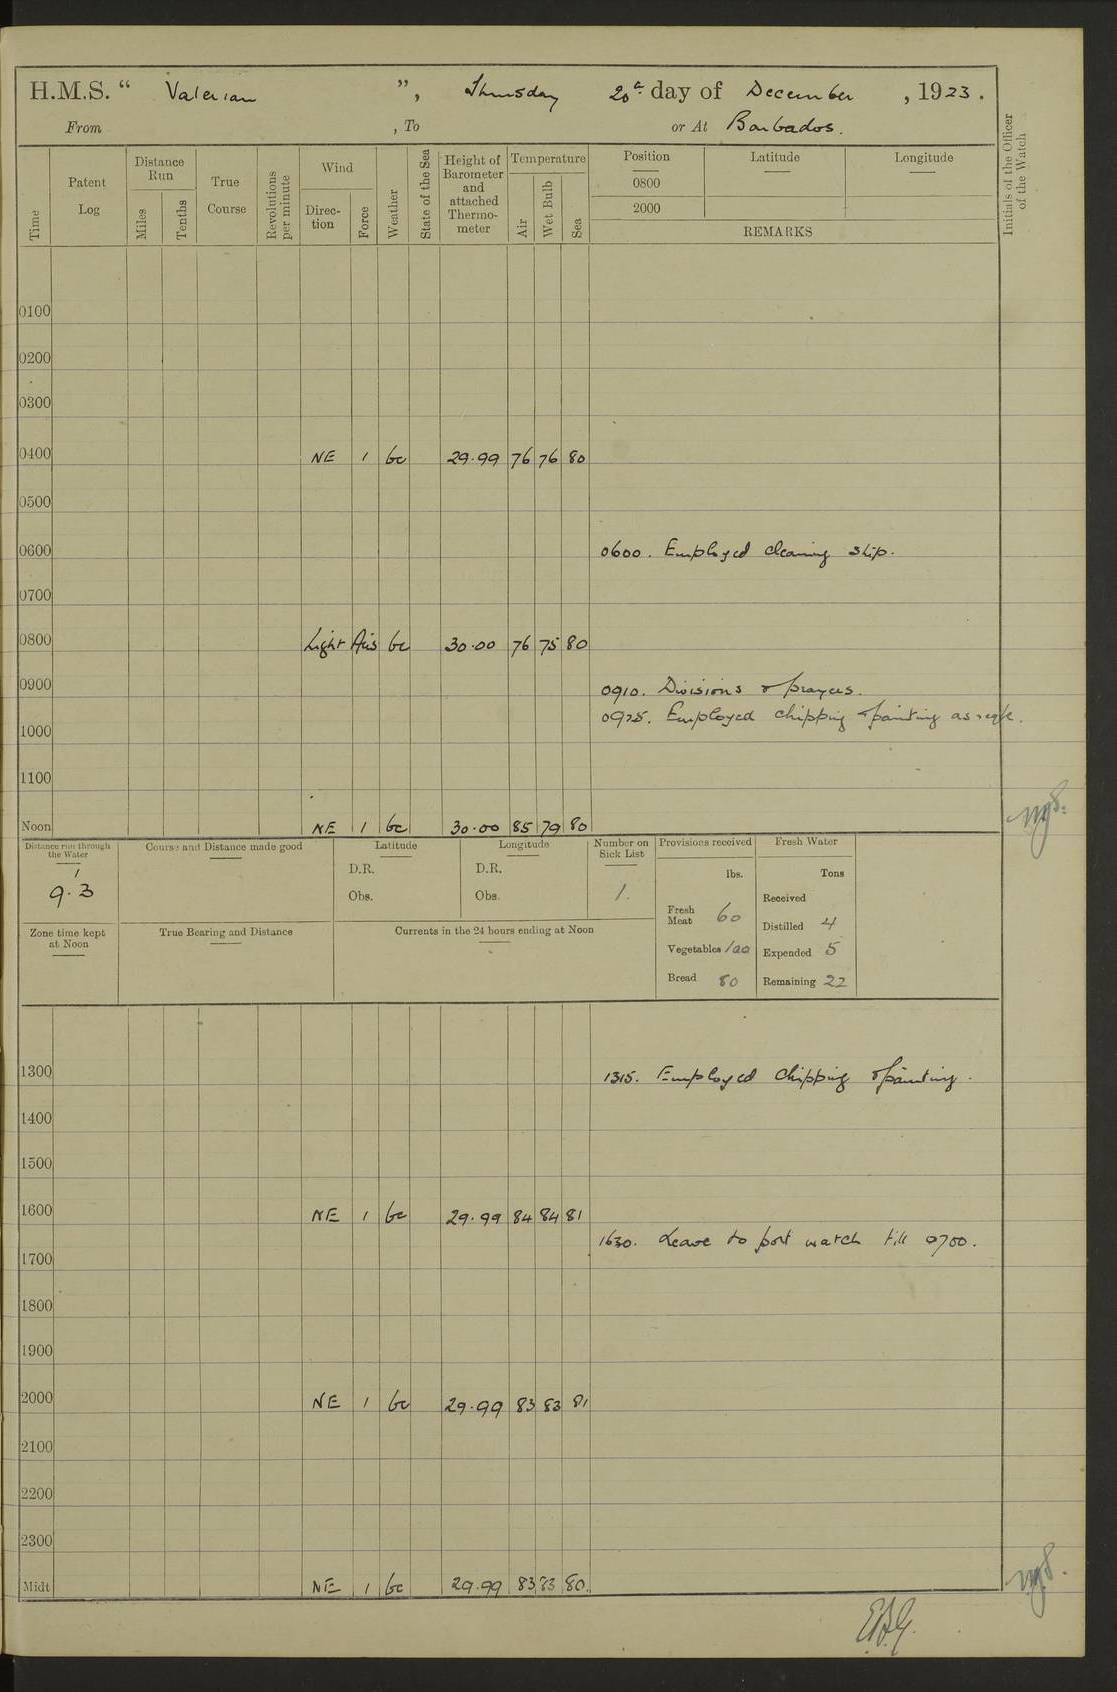 H.M.S. “ Valerian ”, Thursday 20th day of December , 1923.
From , To or At Barbados.
Time
Patent Log
Distance Run
Miles
Tenths
True Course
Revolutions per minute
Wind
Direc-tion
Force
Weather
State of the Sea
Height of Barometer and attached Thermo-meter
Temperature
Air
Wet Bulb
Sea
Position Latitude Longitude
0800
2000
REMARKS
Initials of the Officer of the Watch
0100
0200
0300
0400 NE 1 bc 29.99 76 76 80
0500
0600 0600. Employed cleaning ship.
0700
0800 Light Airs bc 30.00 76 75 80
0900 0910. Divisions & prayers.
0925. Employed chipping & painting as reqte.
1000
1100
Noon NE 1 bc 30.00 85 79 80
Distance run through the Water
1
9.3
Course and Distance made good
Latitude
D.R.
Obs.
Longitude
D.R.
Obs.
Number on Sick List
1.
Provisions received
lbs.
Fresh Meat 60
Vegetables 100
Bread 80
Fresh Water
Tons
Received
Distilled 4
Expended 5
Remaining 22
Zone time kept at Noon
True Bearing and Distance
Currents in the 24 hours ending at Noon
1300 1315. Employed chipping & painting.
1400
1500
1600 NE 1 bc 29.99 84 84 81
1630. Leave to port watch till 0700.
1700
1800
1900
2000 NE 1 bc 29.99 83 83 81
2100
2200
2300
Midt NE 1 bc 29.99 83 83 80.